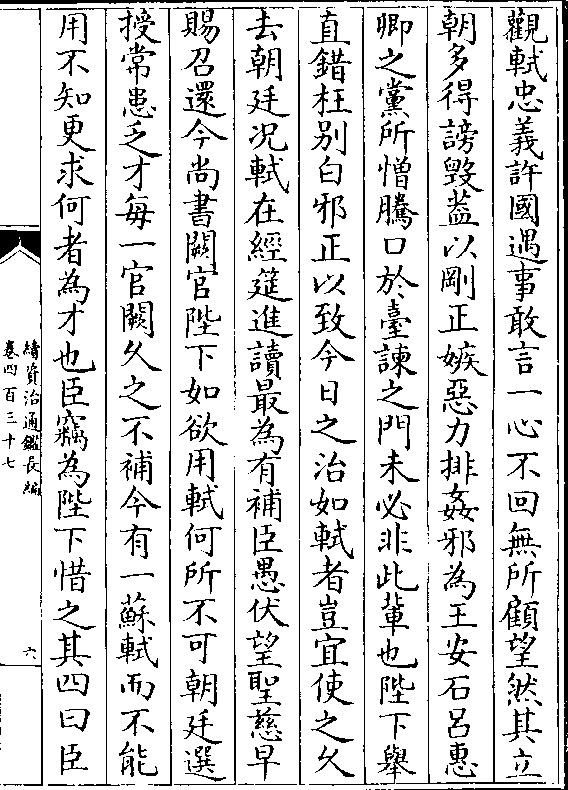 觀軾忠義許國遇事敢言一心不回無所顧望然其立
朝多得謗毀葢以剛正嫉惡力排姦邪為王安石呂惠
卿之黨所憎騰口於臺諫之門未必非此輩也陛下舉
直錯枉别白邪正以致今日之治如軾者豈宜使之久
去朝廷况軾在經筵進讀最為有補臣愚伏望聖慈早
賜召還今尚書闕官陛下如欲用軾何所不可朝廷選
授常患乏才每一官闕久之不補今有一蘇軾而不能
用不知更求何者為才也臣竊為陛下惜之其四曰臣
續資治通鑑長編
卷四百三十七
六